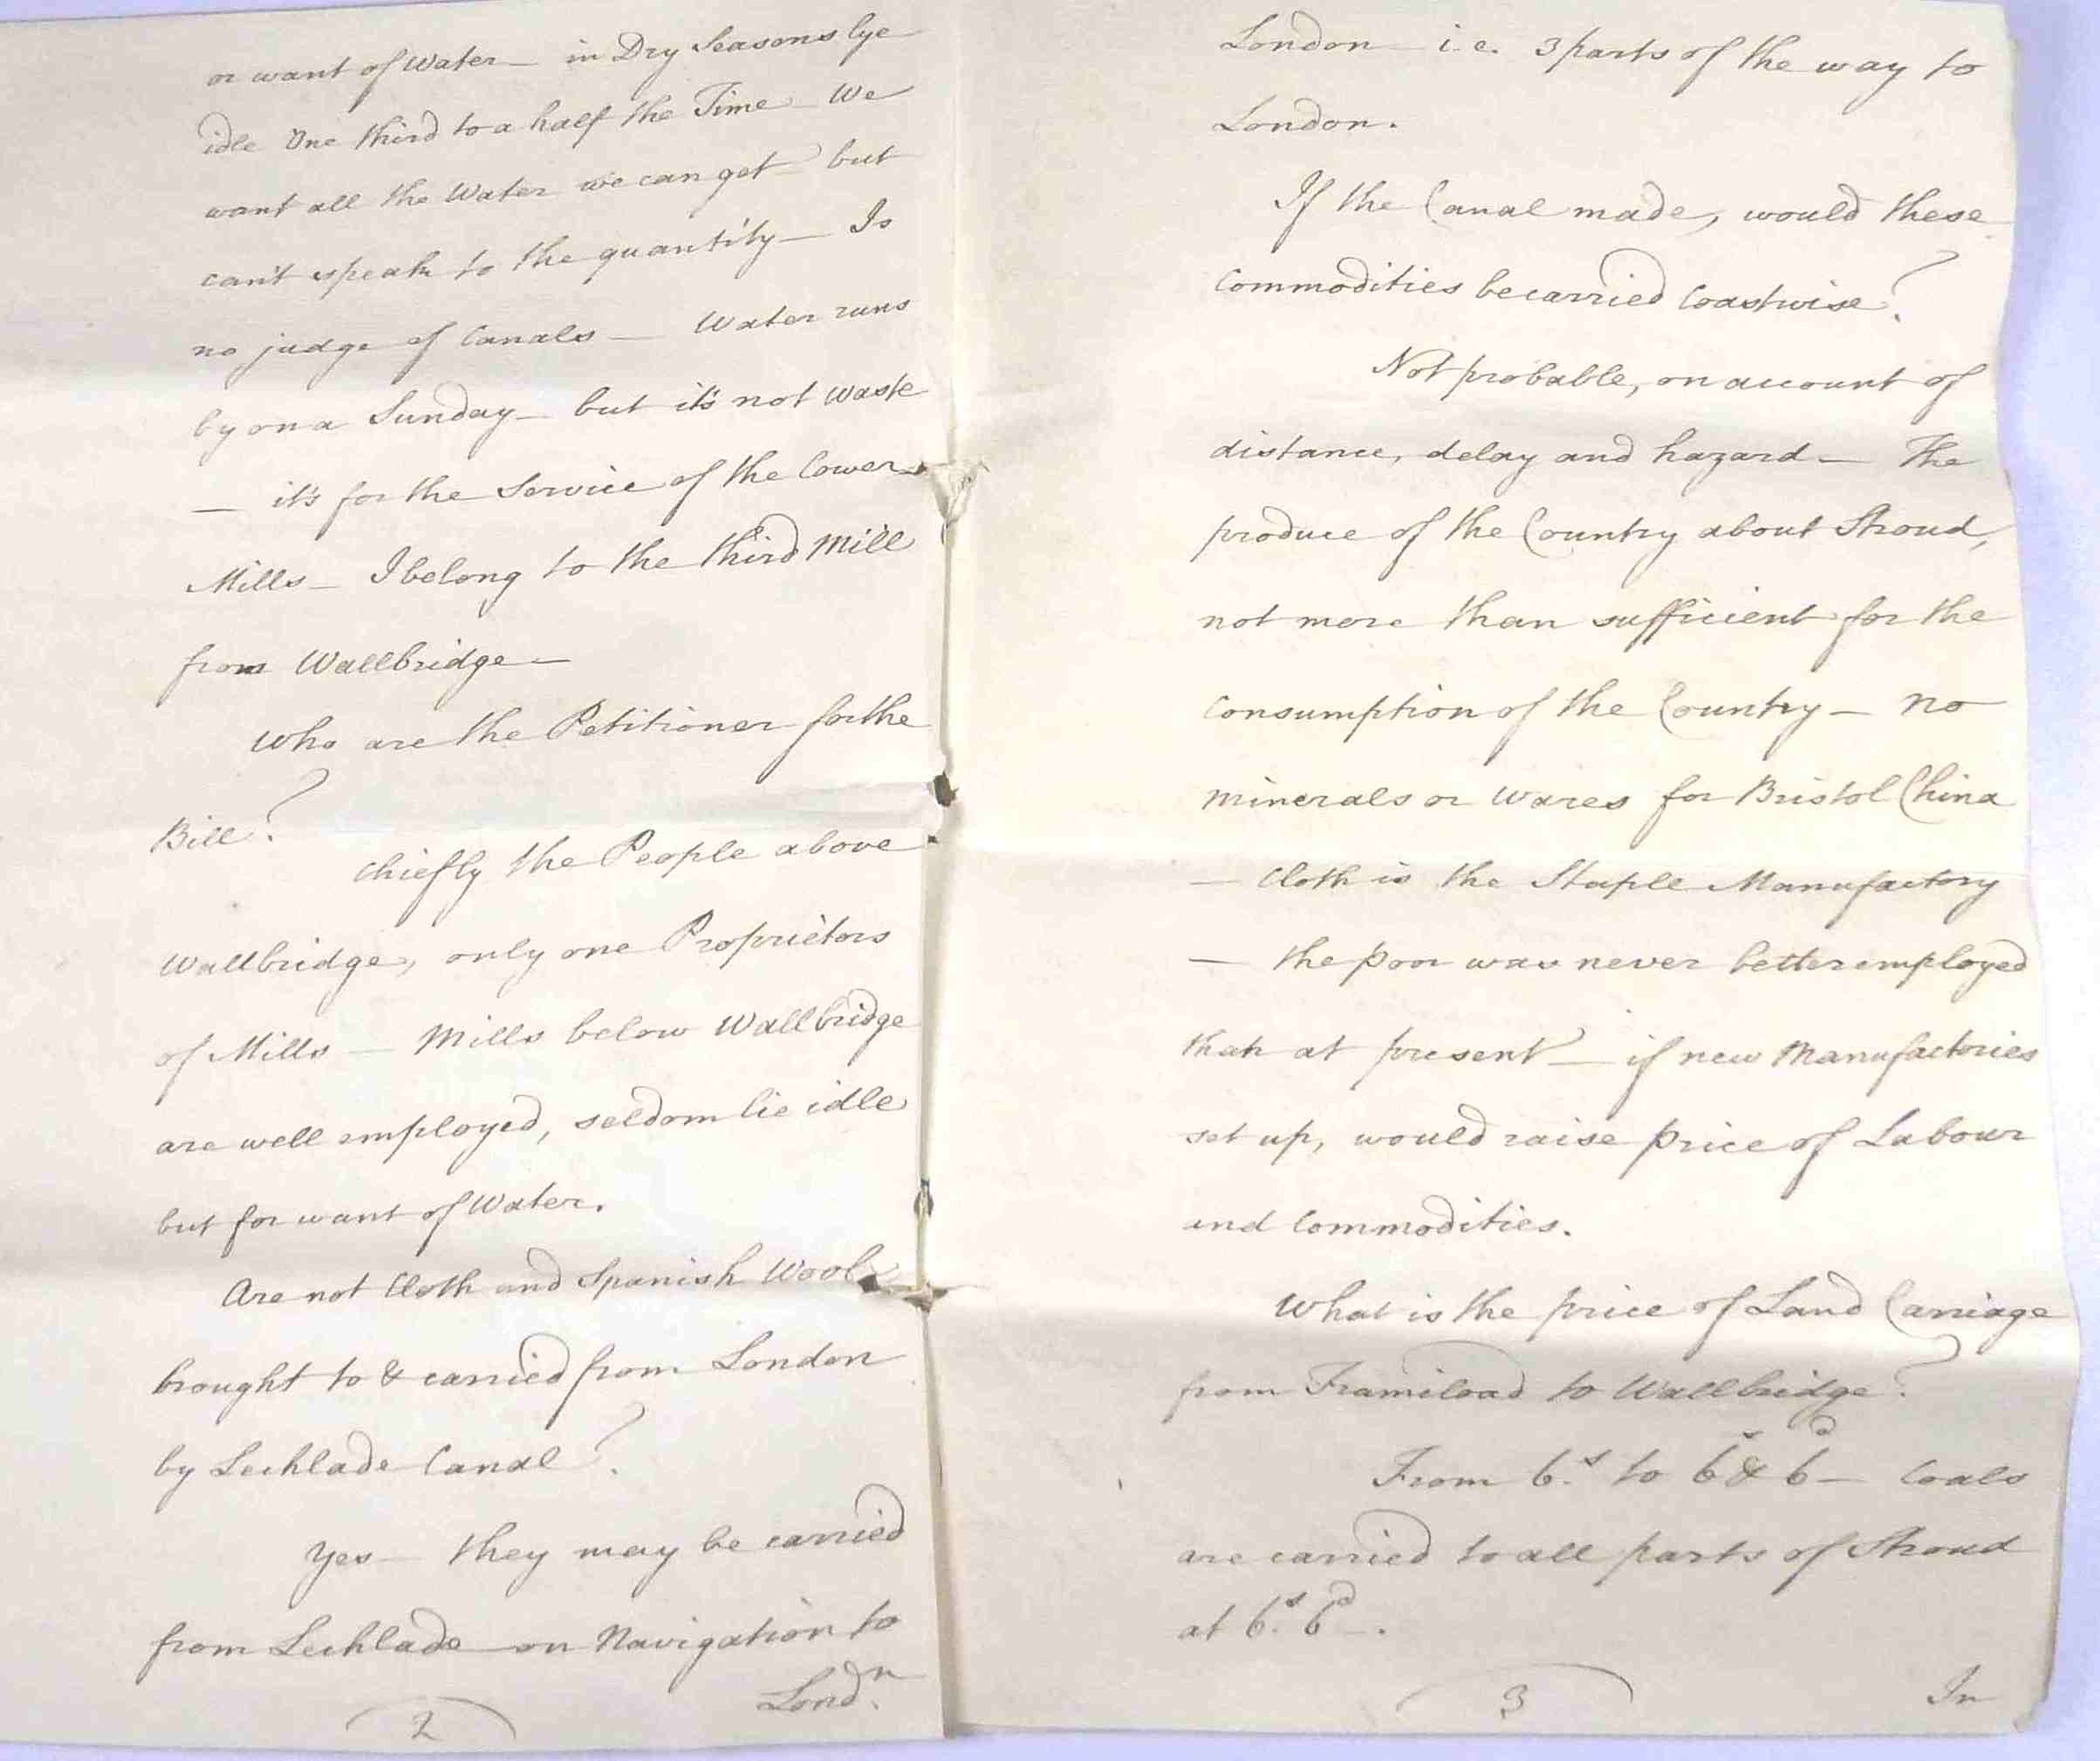 or want of Water — in Dry Seasons lye
idle One third to a half the Time We
want all the Water we can get but
can't speak to the quantity — Is
no judge of Canals — Water runs
by on a Sunday — but it's not waste
— it's for the Service of the lower
Mills — I belong to the third Mill
from Wallbridge —
Who are the Petitioner for the
Bill?
Chiefly the People above
Wallbridge, only one Proprietors
of Mills — Mills below Wallbridge
are well employed, seldom lie idle
but for want of Water.
Are not Cloth and Spanish Wool
brought to & carried from London
by Lechlade Canal?
Yes — they may be carried
from Lechlade on Navigation to
Londn.
2
London i.e. 3 parts of the way to
London.
If the Canal made, would these
Commodities be carried Coastwise?
Not probable, on account of
distance, delay and hazard — The
produce of the Country about Stroud,
not more than sufficient for the
Consumption of the Country — no
minerals or Wares for Bristol China
— Cloth is the Staple Manufactory
— the poor was never better employed
than at present — if new Manufactories
set up, would raise price of Labour
and Commodities.
What is the price of Land Carriage
from Framiload to Wallbridge?
From 6.s to 6s & 6d — Coals
are carried to all parts of Stroud
at 6.s 6d —.
3
In